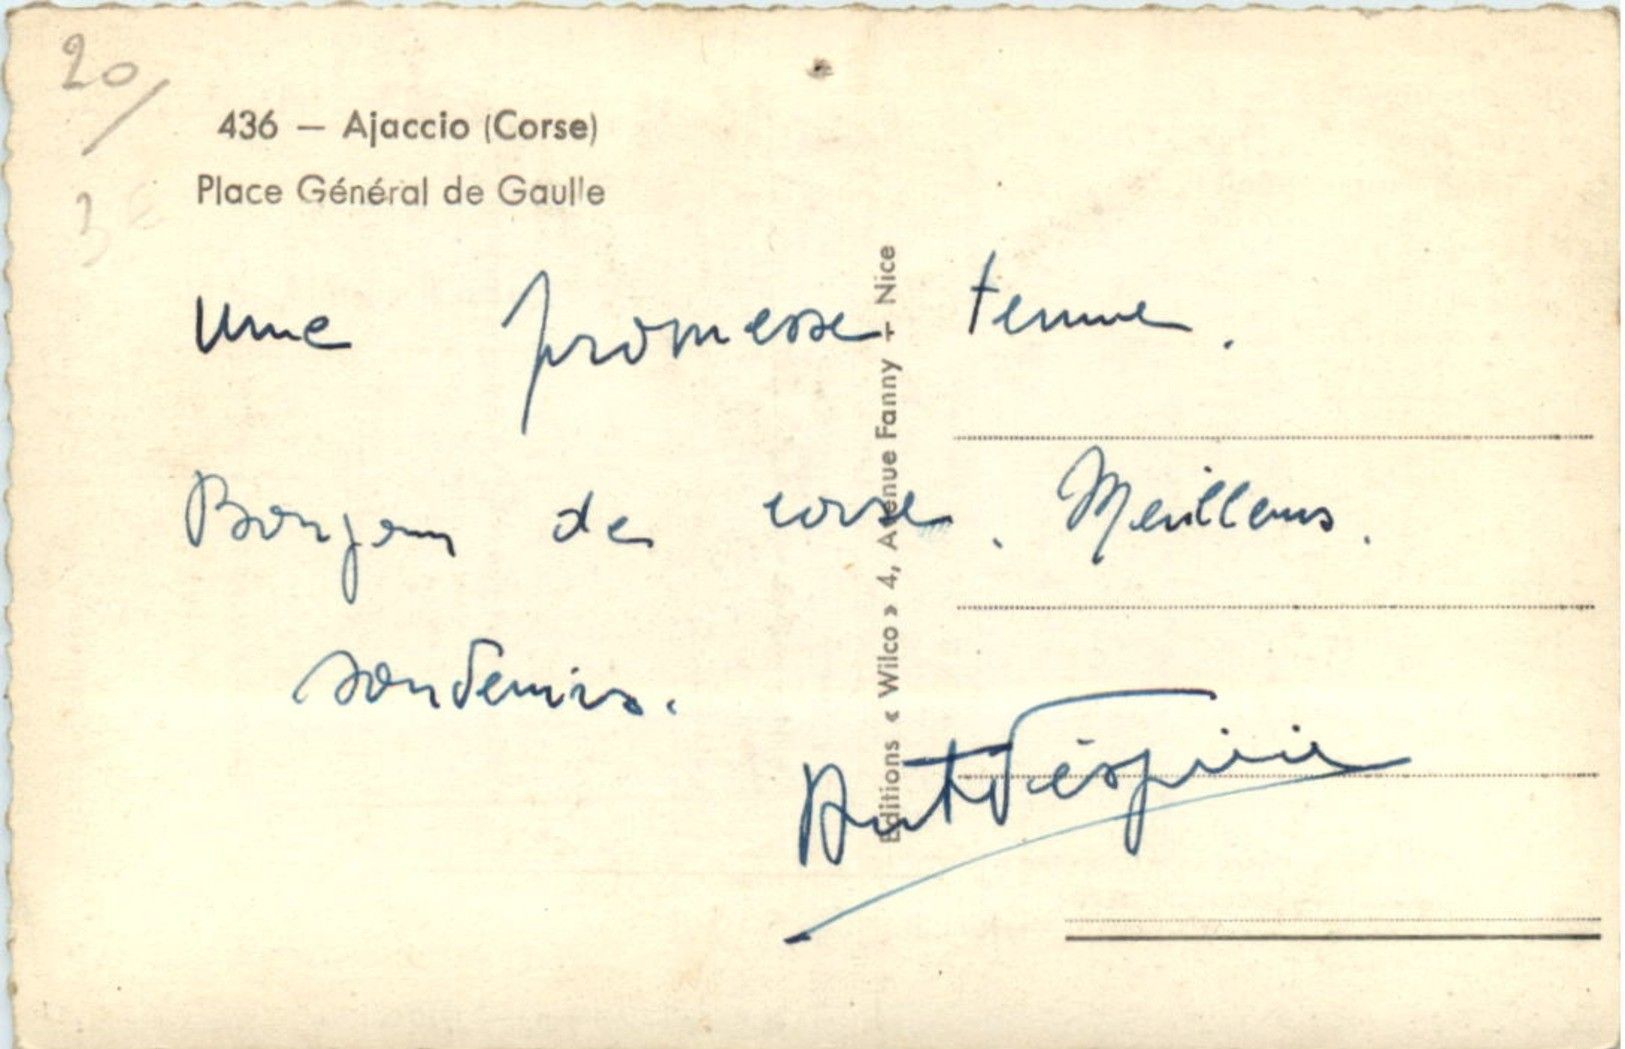 20/
3
436 — Ajaccio (Corse)
Place Général de Gaulle
Une promesse tenue.
Bonjour de corse. Meilleurs.
souvenirs.
Editions « Wilco » 4, Avenue Fanny - Nice